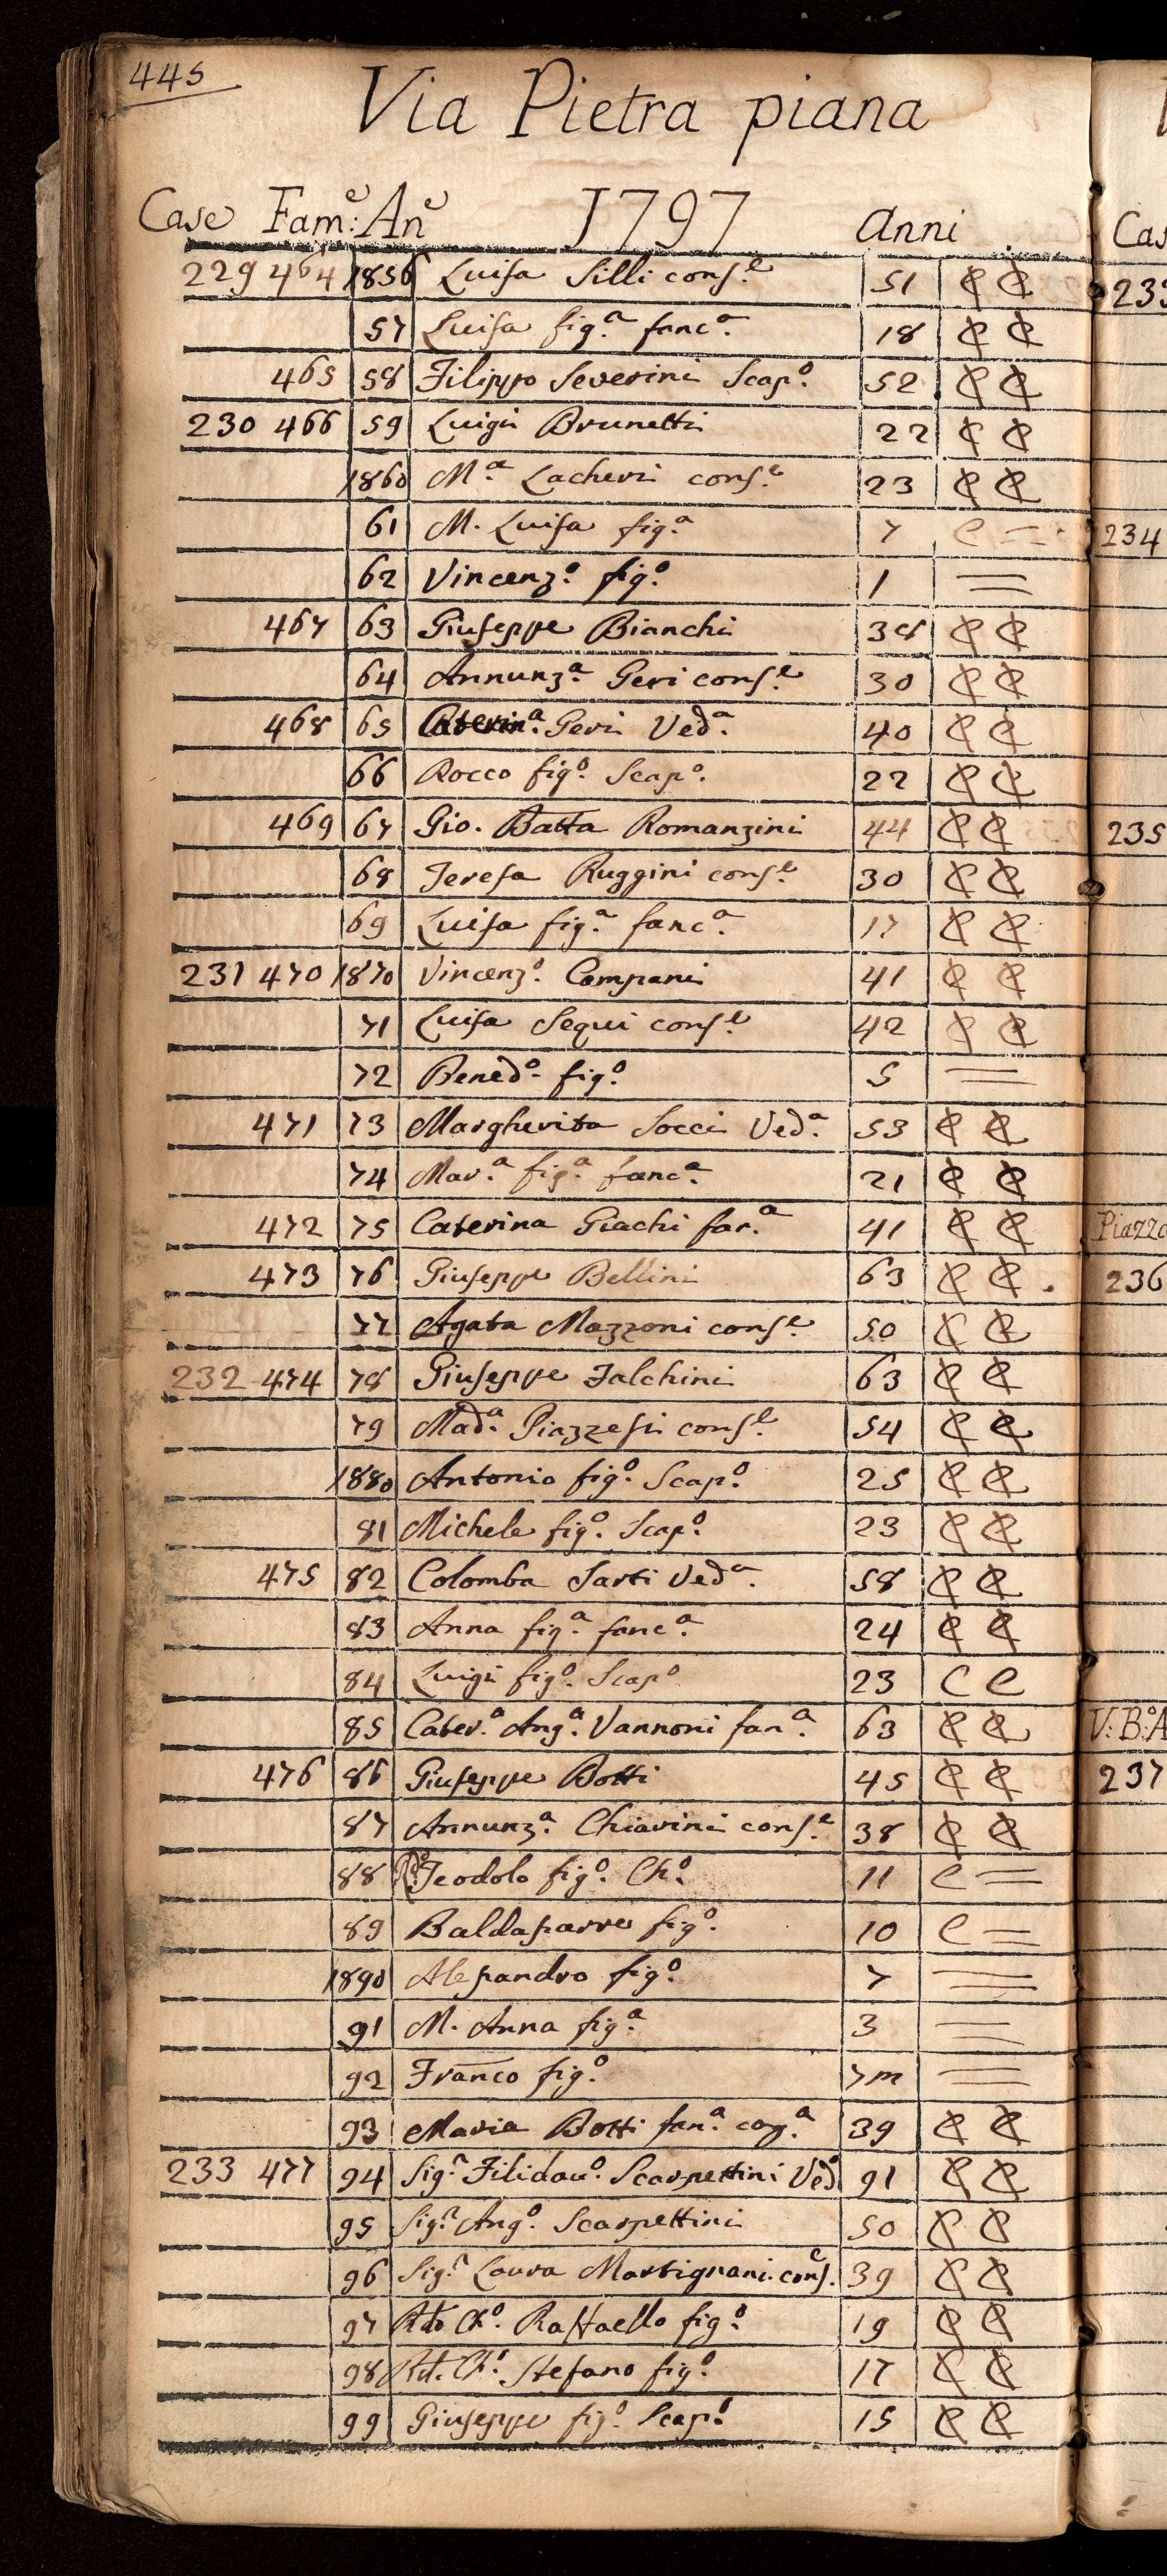 445
Via Pietra piana
Case Fam:e An:e 1797 anni
229 464 1856 Luisa Silli cons.e 51 C C
57 Luisa fig.a fanc.a 18 C C
465 58 Filippo Severini Scap.o 52 C C
230 466 59 Luigi Brunetti 22 C C
1860 M.a Lacheri cons.e 23 C C
61 M. Luisa fig.a 7 C =
62 Vincenz.o fig.o 1 =
467 63 Giuseppe Bianchi 38 C C
64 Annunz.a Geri cons.e 30 C C
468 65 Caterin.a Geri Ved.a 40 C C
66 Rocco fig.o Scap.o 22 C C
469 67 Gio. Batta Romanzini 44 C C
68 Teresa Ruggini cons.e 30 C C
69 Luisa fig.a fanc.a 17 C C
231 470 1870 Vincenz.o Compani 41 C C
71 Luisa Sequi cons.e 42 C C
72 Bened.o fig.o 5 =
471 73 Margherita Socci Ved.a 53 C C
74 Mar.a fig.a fanc.a 21 C C
472 75 Caterina Giachi fan.a 41 C C
473 76 Giuseppe Bellini 63 C C
77 Agata Mazzoni cons.e 50 C C
232 474 78 Giuseppe Falchini 63 C C
79 Mad.a Piazzesi cons.e 54 C C
1880 Antonio fig.o Scap.o 25 C C
81 Michele fig.o Scap.o 23 C C
475 82 Colomba Sarti Ved.a 58 C C
83 Anna fig.a fanc.a 24 C C
84 Luigi fig.o Scap.o 23 C C
85 Cater.a Ang.a Vannoni fan.a 63 C C
476 86 Giuseppe Botti 45 C C
87 Annunz.a Chiarini cons.e 38 C C
88 Teodolo fig.o Ch.o 11 C =
89 Baldasarre fig.o 10 C =
1890 Alesandro fig.o 7 =
91 M. Anna fig.a 3 =
92 Franco fig.o 7m =
93 Maria Botti fan.a cog.a 39 C C
233 477 94 Sig.r Filidau.o Scarpettini Ved.o 91 C C
95 Sig.r Ang.o Scarpettini 50 C C
96 Sig.r Laura Martignani cons.e 39 C C
97 Rdo Ch.o Raffaello fig.o 19 C C
98 Rd. Ch.o Stefano fig.o 17 C C
99 Giuseppe fig.o Scap.o 15 C C
Cas
233
234
235
Piazza
236
V: B:o A
237